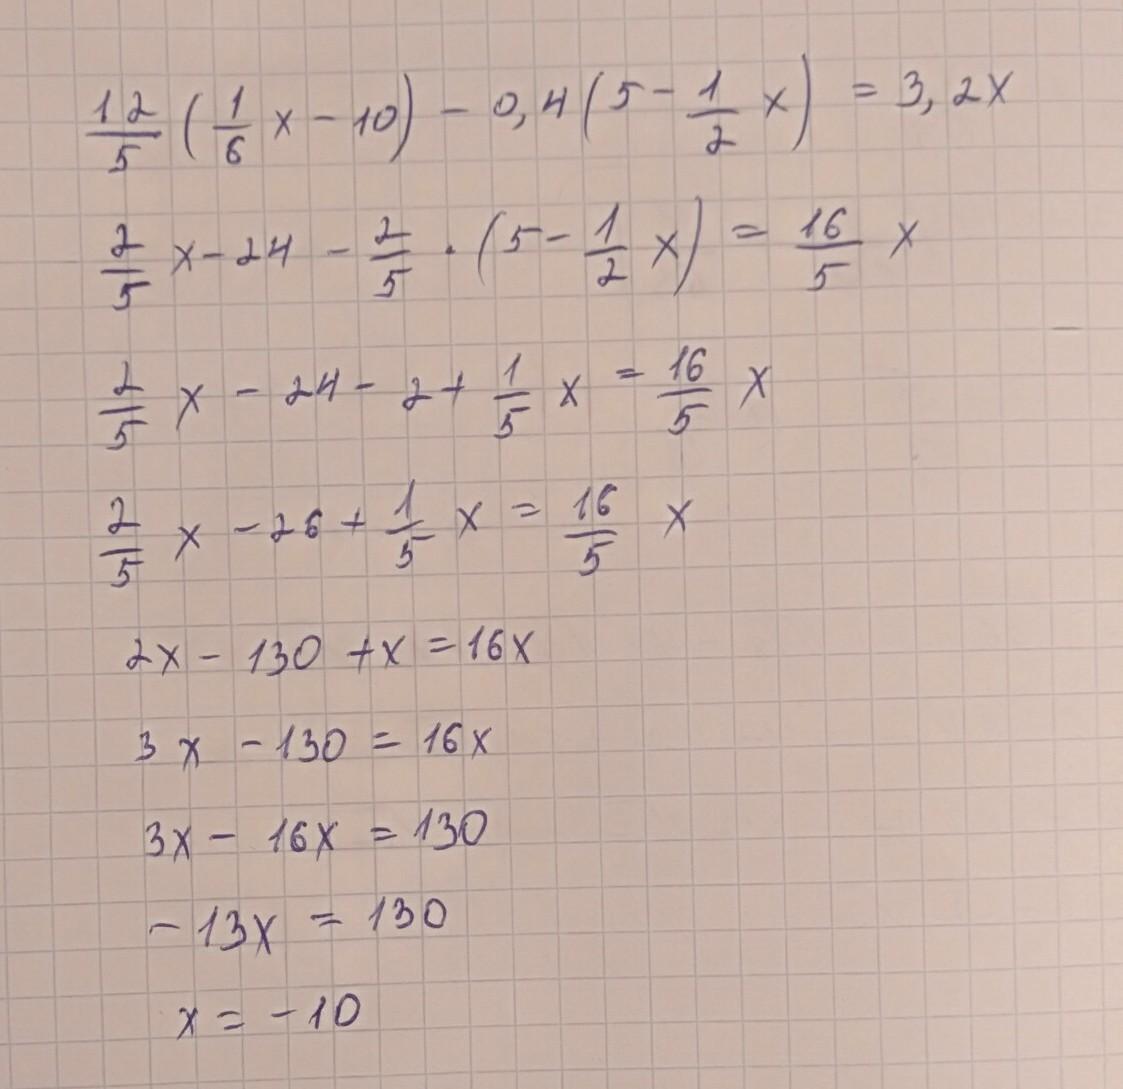 12/5 (1/6 x - 10) - 0,4 (5 - 1/2 x) = 3,2x
2/5 x - 24 - 2/5 · (5 - 1/2 x) = 16/5 x
2/5 x - 24 - 2 + 1/5 x = 16/5 x
2/5 x - 26 + 1/5 x = 16/5 x
2x - 130 + x = 16x
3x - 130 = 16x
3x - 16x = 130
- 13x = 130
x = - 10